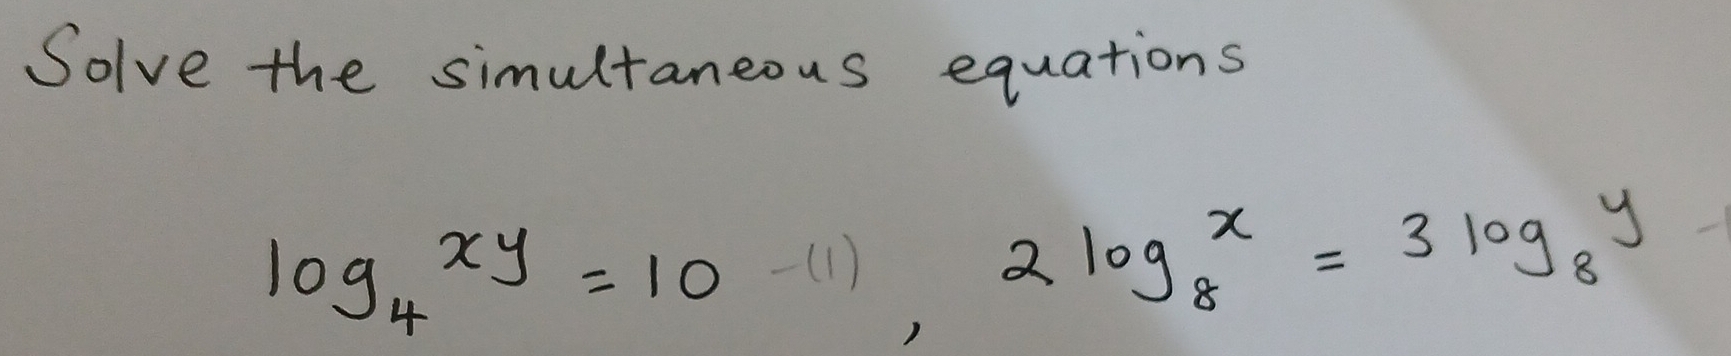 Solve the simultaneous equations
log₄ xy = 10 -(1) , 2 log₈ x = 3 log₈ y